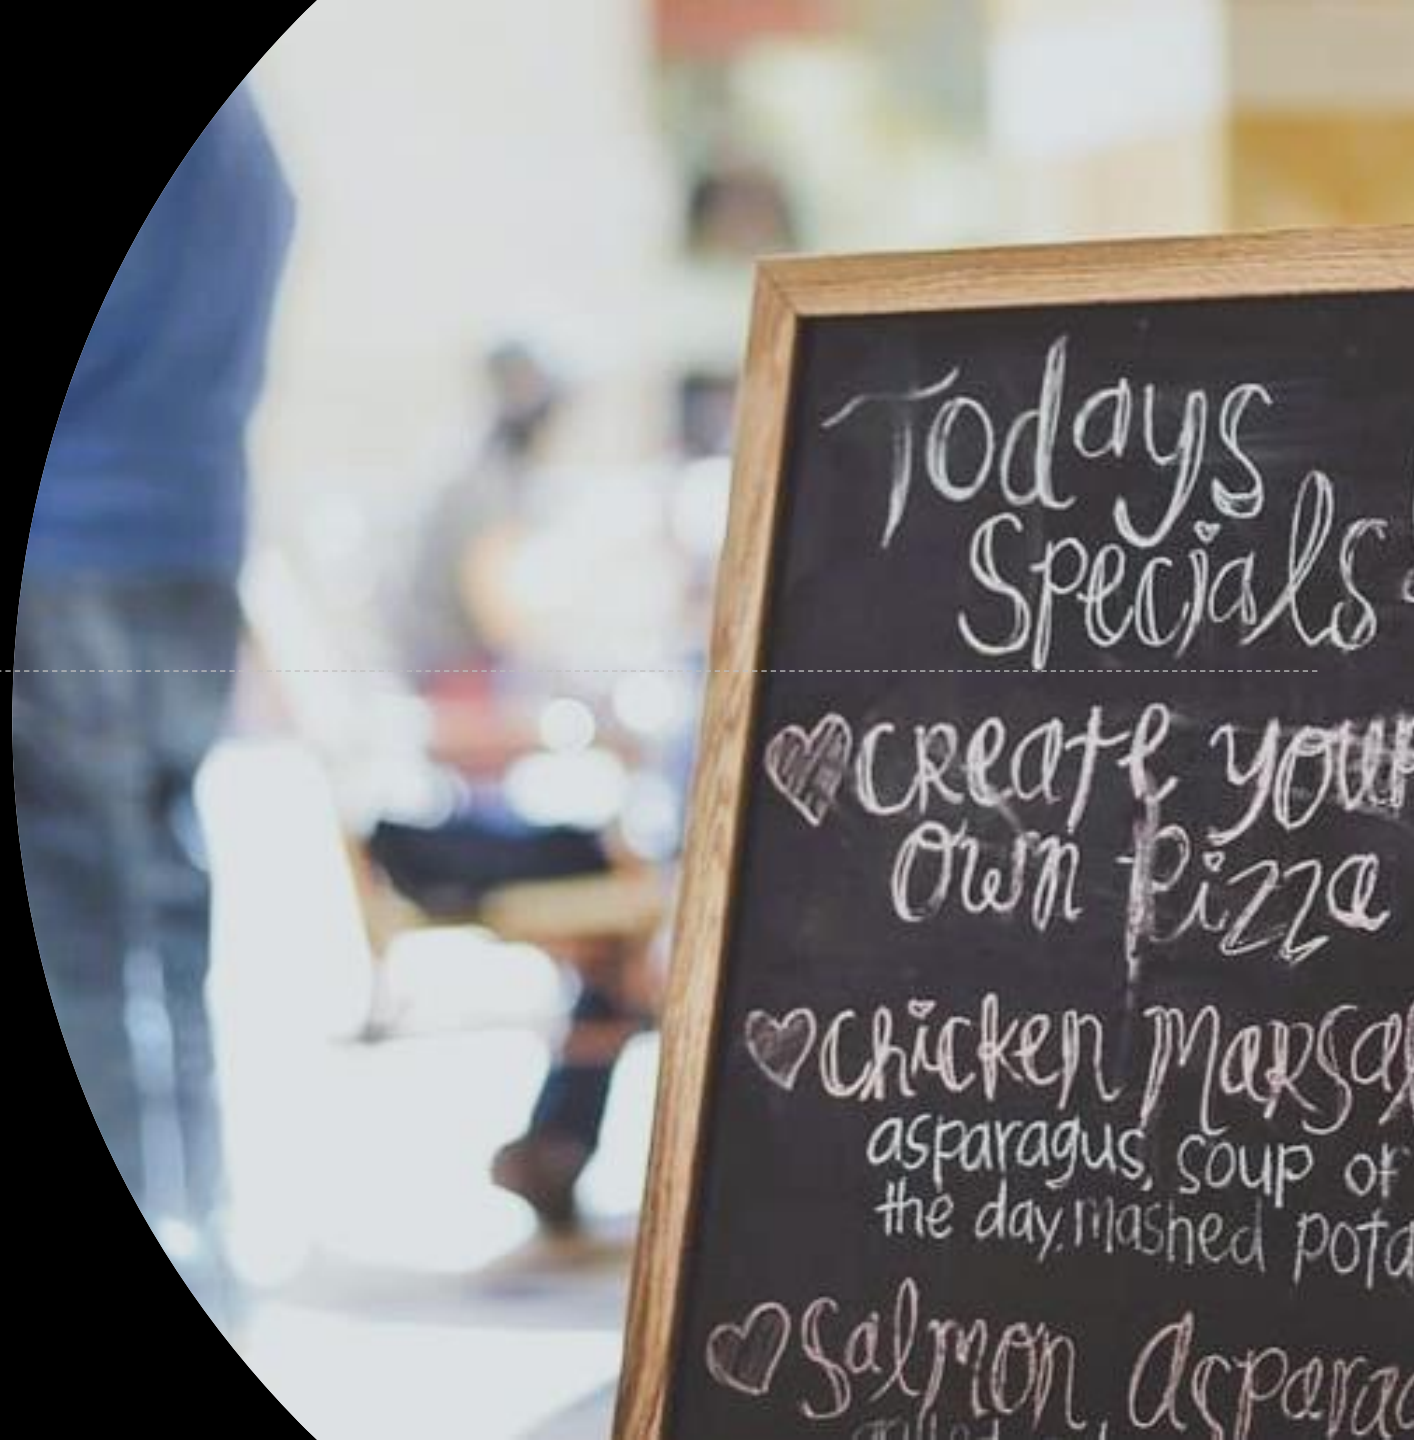 Todays
Specials
Create your
Own Pizza
Chicken Marsal
asparagus, soup of
the day, mashed pota
Salmon, Asparag